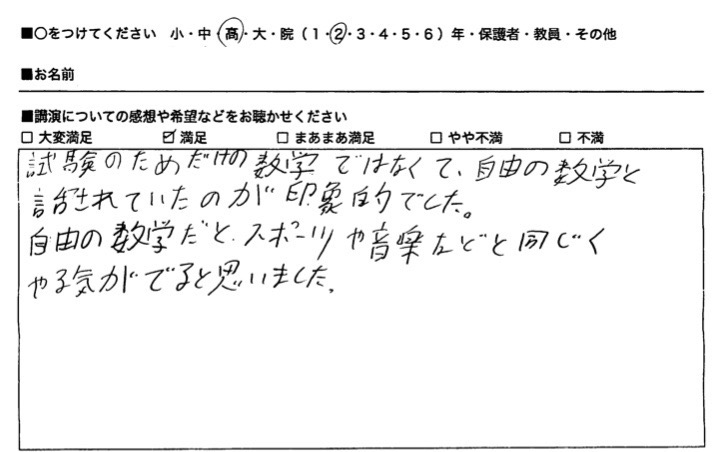 ■○をつけてください 小・中・高・大・院（1・2・3・4・5・6）年・保護者・教員・その他
■お名前
■講演についての感想や希望などをお聴かせください
□ 大変満足 ☑ 満足 □ まあまあ満足 □ やや不満 □ 不満
試験のためだけの数学ではなくて、自由の数学と
話されていたのが印象的でした。
自由の数学だと、スポーツや音楽などと同じく
やる気がでると思いました。